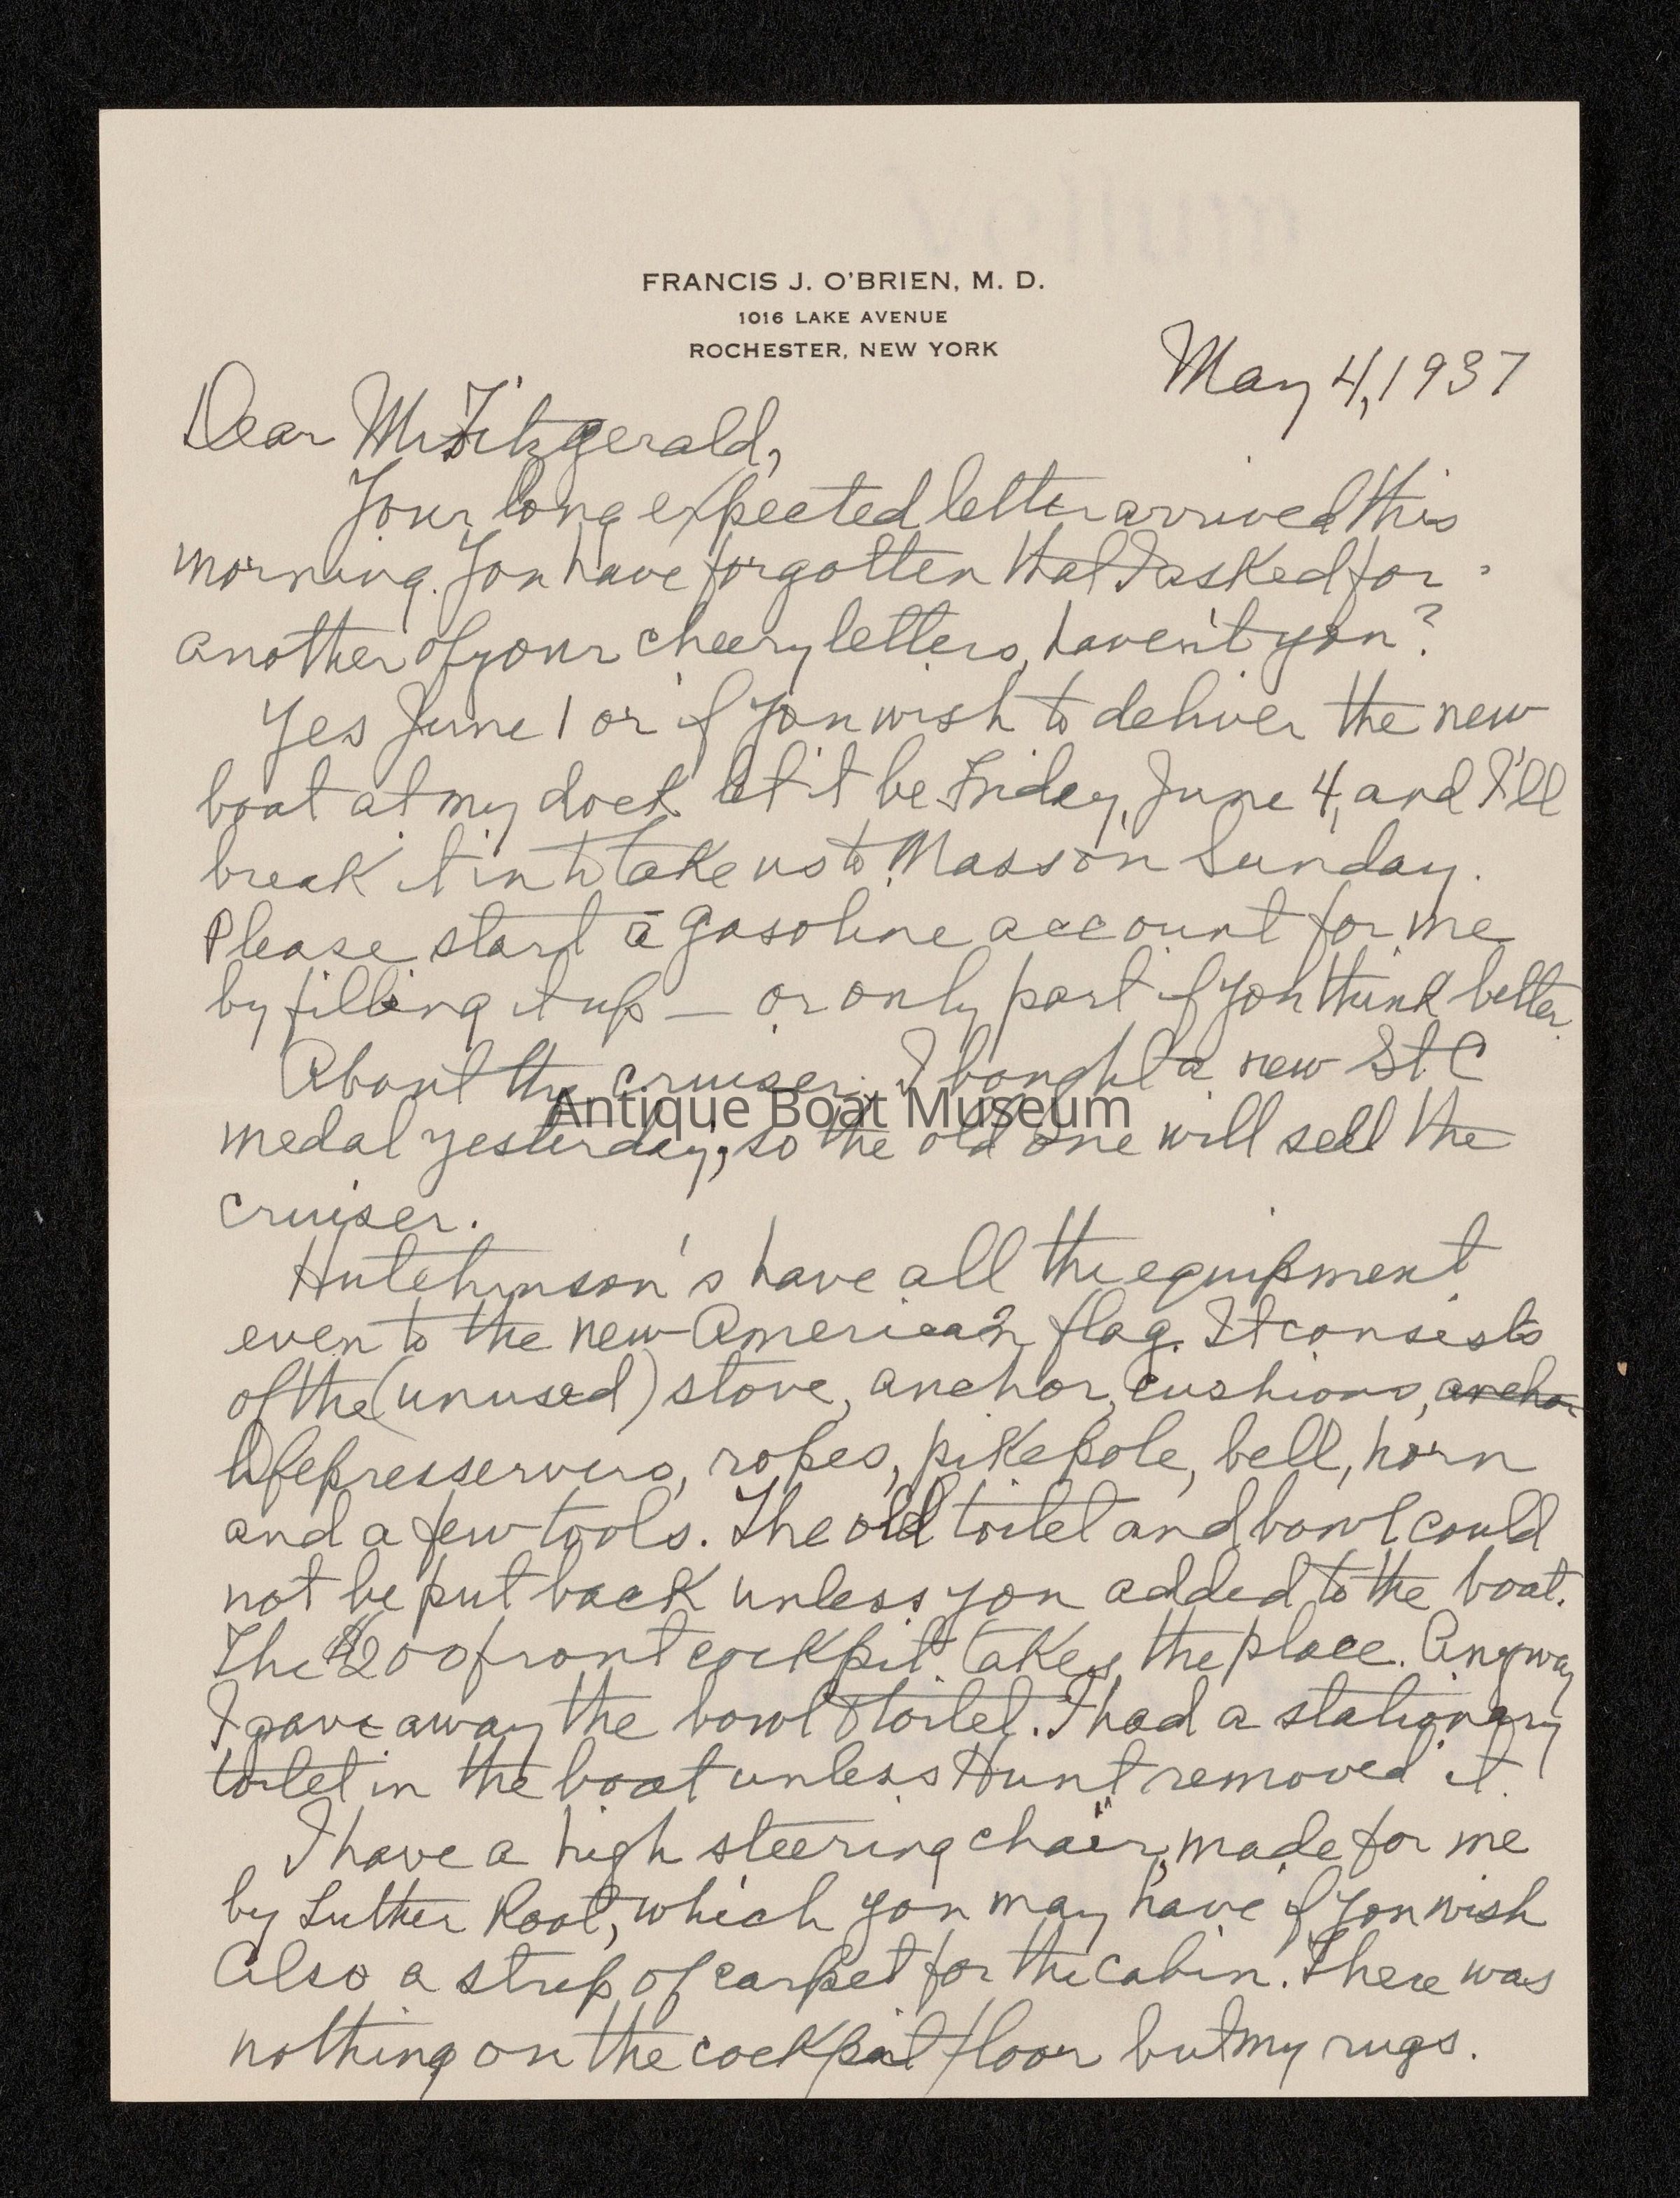 FRANCIS J. O'BRIEN, M. D.
1016 LAKE AVENUE
ROCHESTER, NEW YORK
May 4, 1937
Dear Mr Fitzgerald,
Your long expected letter arrived this
morning. You have forgotten that I asked for
another of your cheery letters, haven't you?
Yes June 1 or if you wish to deliver the new
boat at my dock let it be Friday, June 4, and I'll
break it in to take us to Mass on Sunday.
Please start a gasoline account for me
by filling it up — or only part if you think better.
About the cruiser; I bought a new St C
medal yesterday, so the old one will sell the
cruiser.
Antique Boat Museum
Hutchinson's have all the equipment
even to the new American flag. It consists
of the (unused) stove, anchor, cushions, anchor
lifepresservers, ropes, pikepole, bell, horn
and a few tools. The old toilet and bowl could
not be put back unless you added to the boat.
The $200 front cockpit takes the place. Anyway
I gave away the bowl & toilet. I had a stationary
toilet in the boat unless Hunt removed it.
I have a high steering chair, made for me
by Luther Root, which you may have if you wish
Also a strip of carpet for the cabin. There was
nothing on the cockpit floor but my rugs.